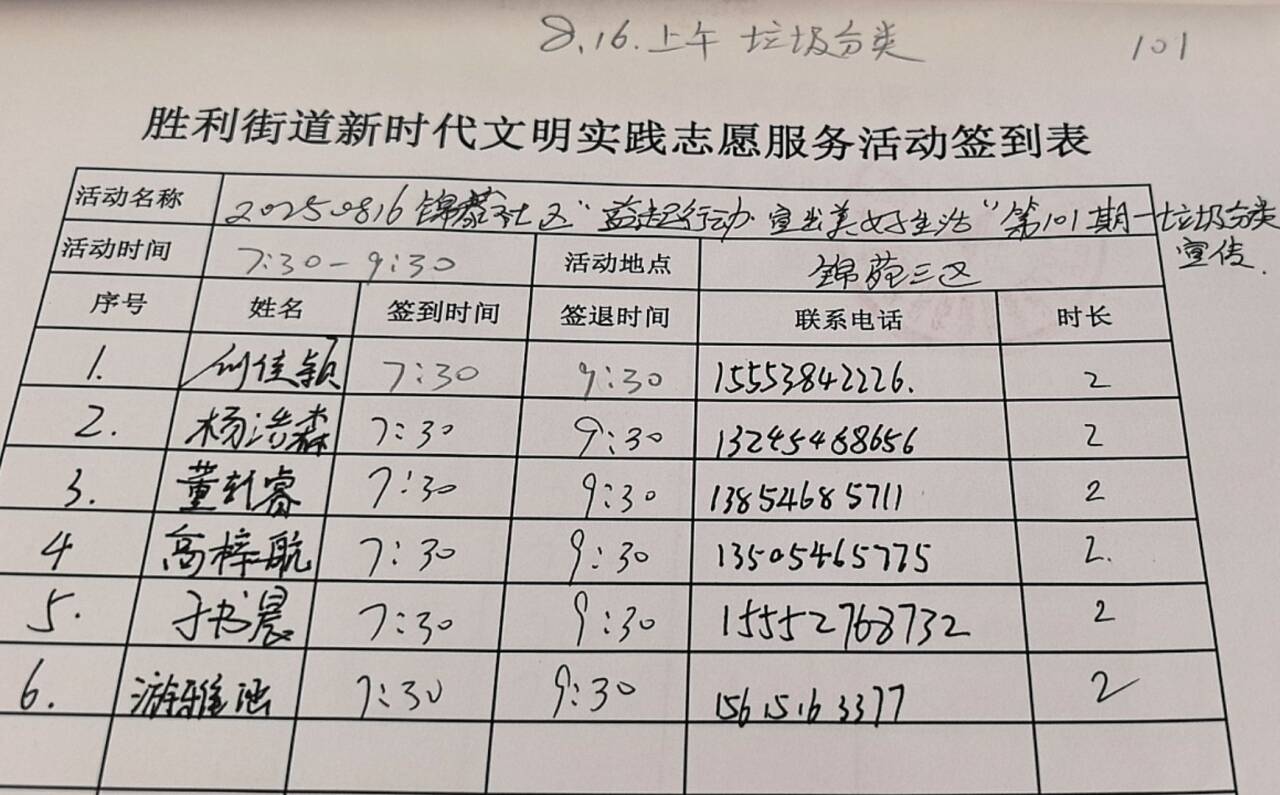 8.16.上午 垃圾分类 101
胜利街道新时代文明实践志愿服务活动签到表
活动名称 20250816锦苑社区“益起行动 宜出美好生活”第101期—垃圾分类
宣传.
活动时间 7:30-9:30 活动地点 锦苑三区
序号 姓名 签到时间 签退时间 联系电话 时长
1. 刘佳颖 7:30 9:30 15553842226. 2
2. 杨浩森 7:30 9:30 13245468656 2
3. 董轩睿 7:30 9:30 13854685711 2
4 高梓航 7:30 9:30 13505465775 2.
5. 于书晨 7:30 9:30 15552768732 2
6. 游雅涵 7:30 9:30 15615163377 2